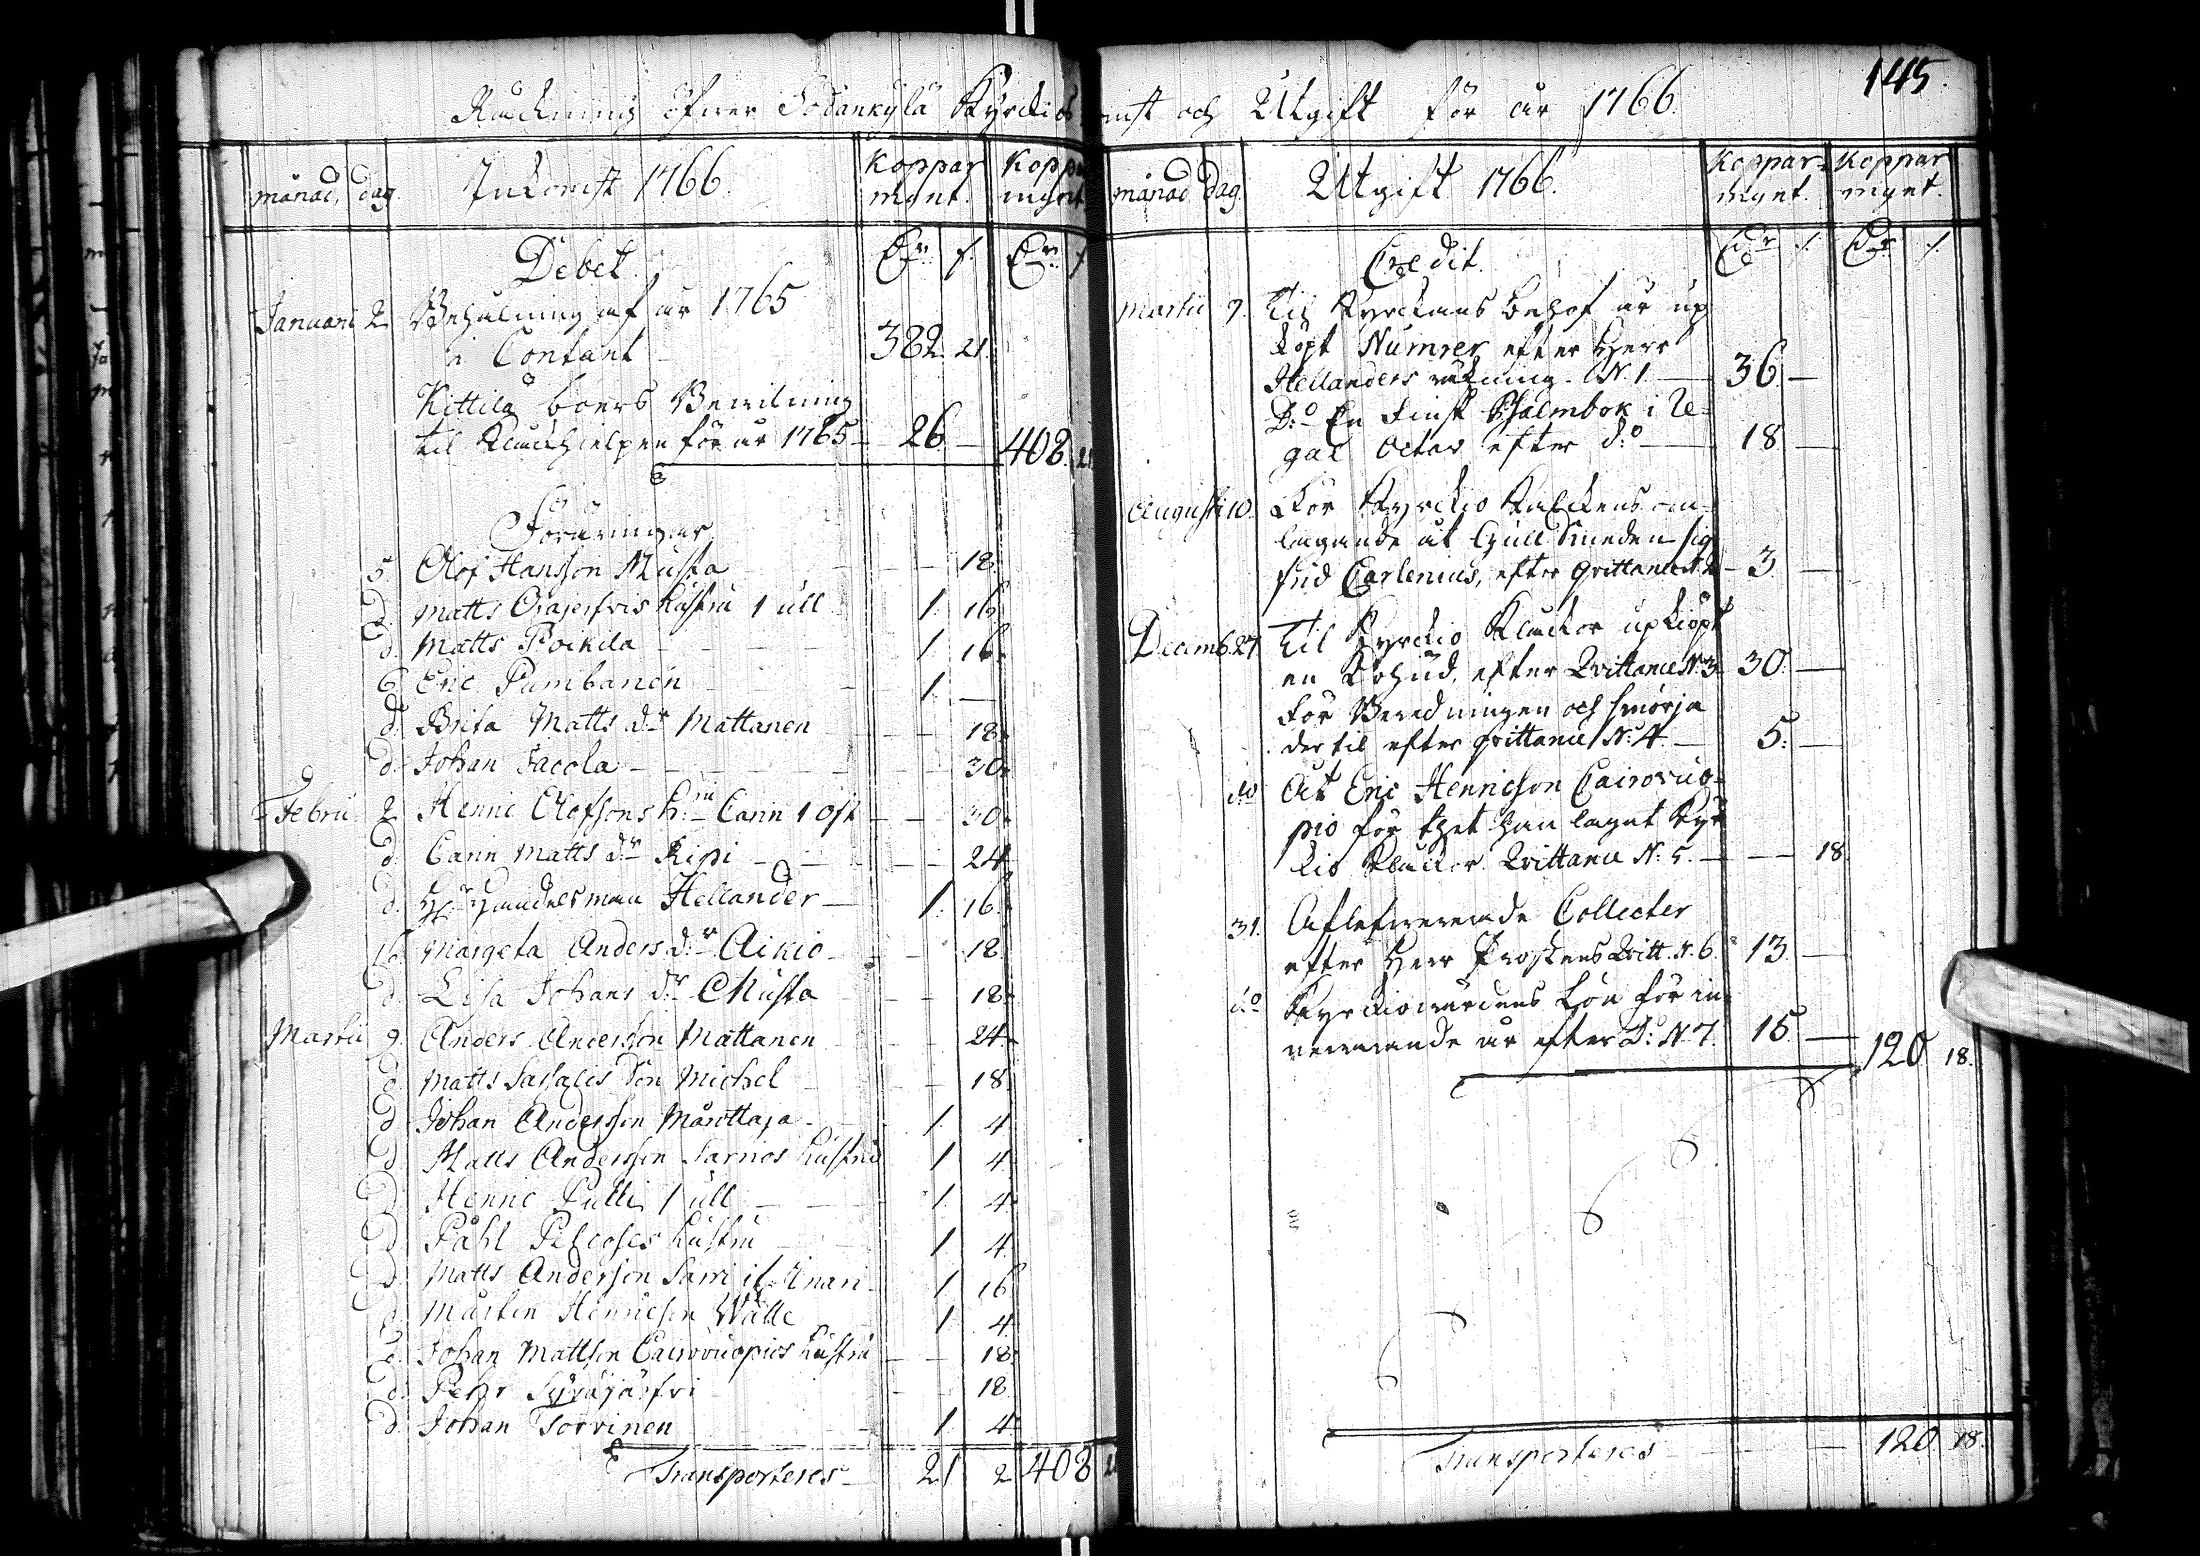 145.
Räckning öfwer Sodankylä Kyrckios
mst och Utgift för år 1766.
månad. dag. Inkomst 1766. Koppar mynt. Koppar mynt.
Debet. Dr. s. Dr. s.
Januari 2 Behålning af år 1765
i Contant 382. 21.
Kittilä boers Bewilning
til Klåckhielpen för år 1765 – 26 – 408. 21
Föräringar
5 Olof Hansson Musta – – 18.
d. Matts Orajerfvis hustru 1 ull 1. 16.
d. Matts Poikela – – – 1. 16.
6 Eric Pumbanen – – 1. –
d. Brita Matts dr Mattanen – – 18.
d. Johan Jacola – – – – 30.
Febru 2 Henric Olofsons h:u Carin 1 ost – – 30.
d. Carin Matts dr Kipi – – – 24.
d. Hr Handelsman Hellander – 1. 16.
16 Margeta Anders dr Aikio – – 18.
d. Lisa Johans dr Musta – – 18.
Martii 9. Anders Andersson Mattanen – 24.
d Matts Sassalis Son Michel – 18.
d Johan Andersson Mårottaja – 1. 4.
d Matts Andersson Sarnos hustru 1. 4.
d Henric Pulli 1 ull – – 1. 4.
d Påhl Pelcoses hustru 1. 4.
d. Matts Anderson Sarri if. Enari 1. 16
d Mårten Henricson Wälle 1. 4.
d. Johan Mattson Cairovuopios hustru – – 18.
d. Pehr Syväjärfvi – – 18.
d Johan Torvinen – 1. 4.
Transporteres – 21 2 408 21
månad Dag. Utgift 1766. Koppar mynt. Koppar mynt.
Credit. Dr s. Dr s.
Martii 9. Til Kyrckans behof är up
köpt Numrer efter Herr
Hellanders räkning. N. 1. – 36 –
D:o En Finsk Psalmbok i Re-
gal Octav efter d:o – 18 –
Augusti 10. För Kyrckio Kalckens om-
lagande åt Gull Smeden Sig
frid Carlenius, efter qvittance N. 2 – 3 –
Decemb. 27 Til Kyrckio Klåckor upköpt
en Kohud, efter Qvittance N. 3. 30. –
För Beredningen och smörja
der til efter qvittance N:o 4 – 5. –
do At Eric Henricson Cairovuo-
pio för thet han lagat Kyr
kio Klåckor Qvittance N. 5. – – – 18.
31. Aflefwererade Collecter
efter Herr Prostens Qvitt. N. 6. 13 –
do Kyrckiowärdens Lön för in-
newarande år efter D:o N. 7. 15 – 120 18.
Transporteres – – – 120. 18.